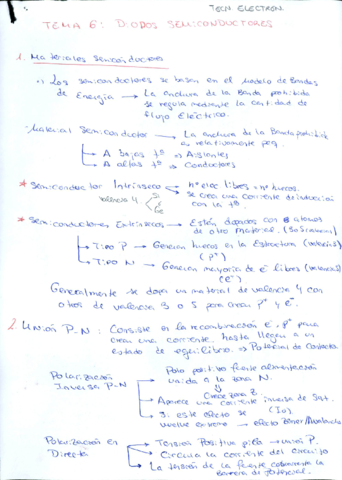 TECN ELECTRON.
TEMA 6: DIODOS SEMICONDUCTORES
1. Materiales Semiconductores
Los semiconductores se basan en el Modelo de Bandas
de Energía → La anchura de la Banda prohibida
se regula mediante la cantidad de
flujo Eléctrico.
Material Semiconductor → La anchura de la Banda prohibida
es relativamente peq.
→ A bajas tº ⇒ Aislantes
→ A altas tº ⇒ Conductores
* Semiconductor Intrínseco → nº elec libres = nº huecos.
Valencia 4 Si Ge → Se crea una corriente de
con la tº.
* Semiconductores Extrínsecos → Están dopados con átomos
de otro material.
→ Tipo P → Generan huecos en la Estructura
(p+)
→ Tipo N → Generan mayoría de e- libres
(e-)
Generalmente se dopa un material de valencia 4 con
otros de valencia 3 o 5 para crear p+ y e-.
2. Unión P-N: Consiste en la recombinación e-, p+ para
crear una corriente, hasta llegar a un
estado de equilibrio. ⇒ Potencial de Contacto
Polarización
Inversa P-N
→ Polo positivo fuente alimentación
unida a la zona N.
y
Crece zona
→ Aparece una corriente inversa de Sat.
(Io)
→ Si este efecto se
vuelve extremo → efecto Zener/Avalancha
Polarización en
Directa
→ Tensión Positiva → unión P.
→ Circula la corriente del circuito
→ La tensión de la fuente la
barrera de potencial.